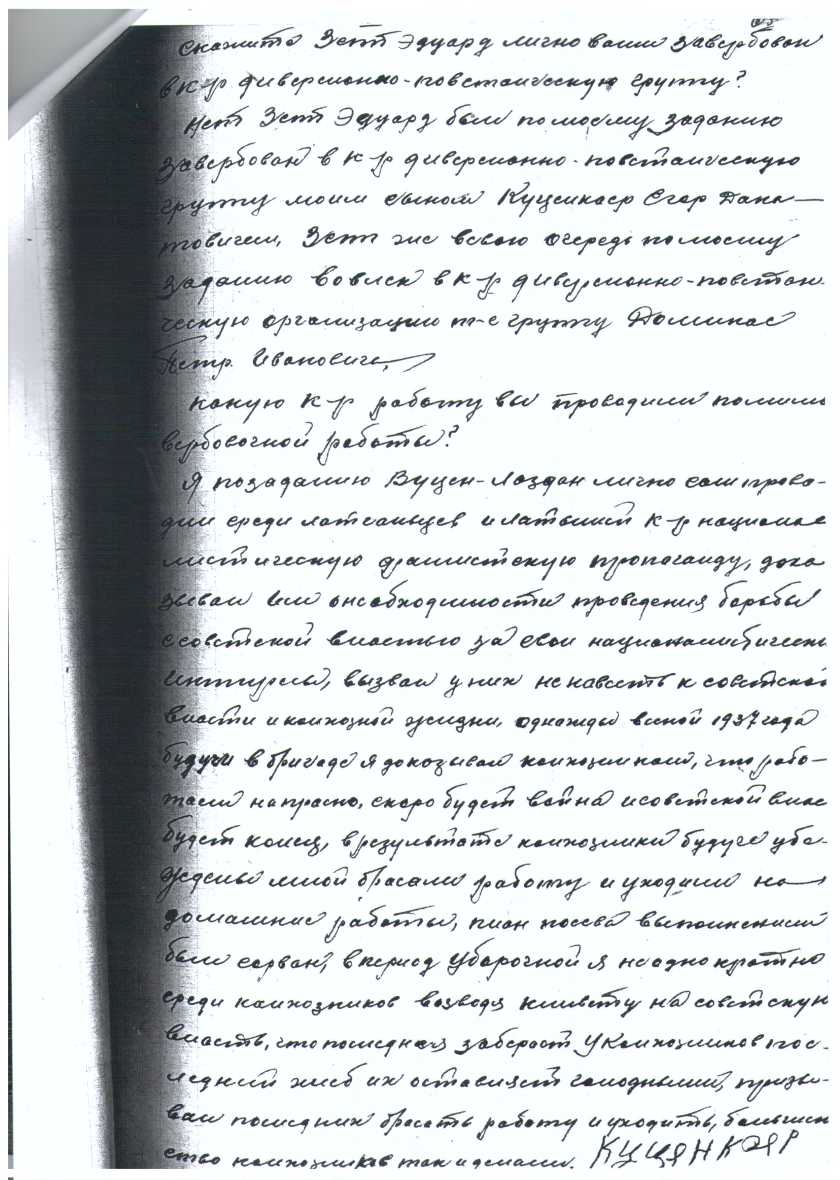 Скажите Зетт Эдуард лично вами завербован
в к-р диверсионно-повстанческую группу?
Нет Зетт Эдуард был по моему заданию
завербован в к-р диверсионно-повстанческую
группу моим сыном Егор Дона-
товичем, Зетт же в свою очередь по моему
заданию вовлек в к-р диверсионно-повстан-
ческую организацию т-е группу
Петр Ивановича,
Какую к-р работу вы проводили помимо
вербовочной работы?
Я по заданию Вуцен-Лаздан лично сам прово-
дил среди латгальцев и латышей к-р национа
листическую фашистскую пропаганду, дока
зывал им о необходимости проведения борьбы
с советской властью за свои националистически
интересы, вызвал у них ненависть к советской
власти и колхозной жизни, однажды весной 1937 года
будучи в бригаде я доказывал колхозникам, что рабо-
таем напрасно, скоро будет война и советской влас
будет конец, в результате колхозники будучи убе-
ждены мной бросали работу и уходили на
домашние работы, план посева выполнением
был сорван, в период уборочной я неоднократно
среди колхозников возводя клевету на советскую
власть, что последняя заберет у колхозников пос-
ледний хлеб их оставит голодными, призы-
вал последних бросать работу и уходить, большин
ство колхозников так и делали.